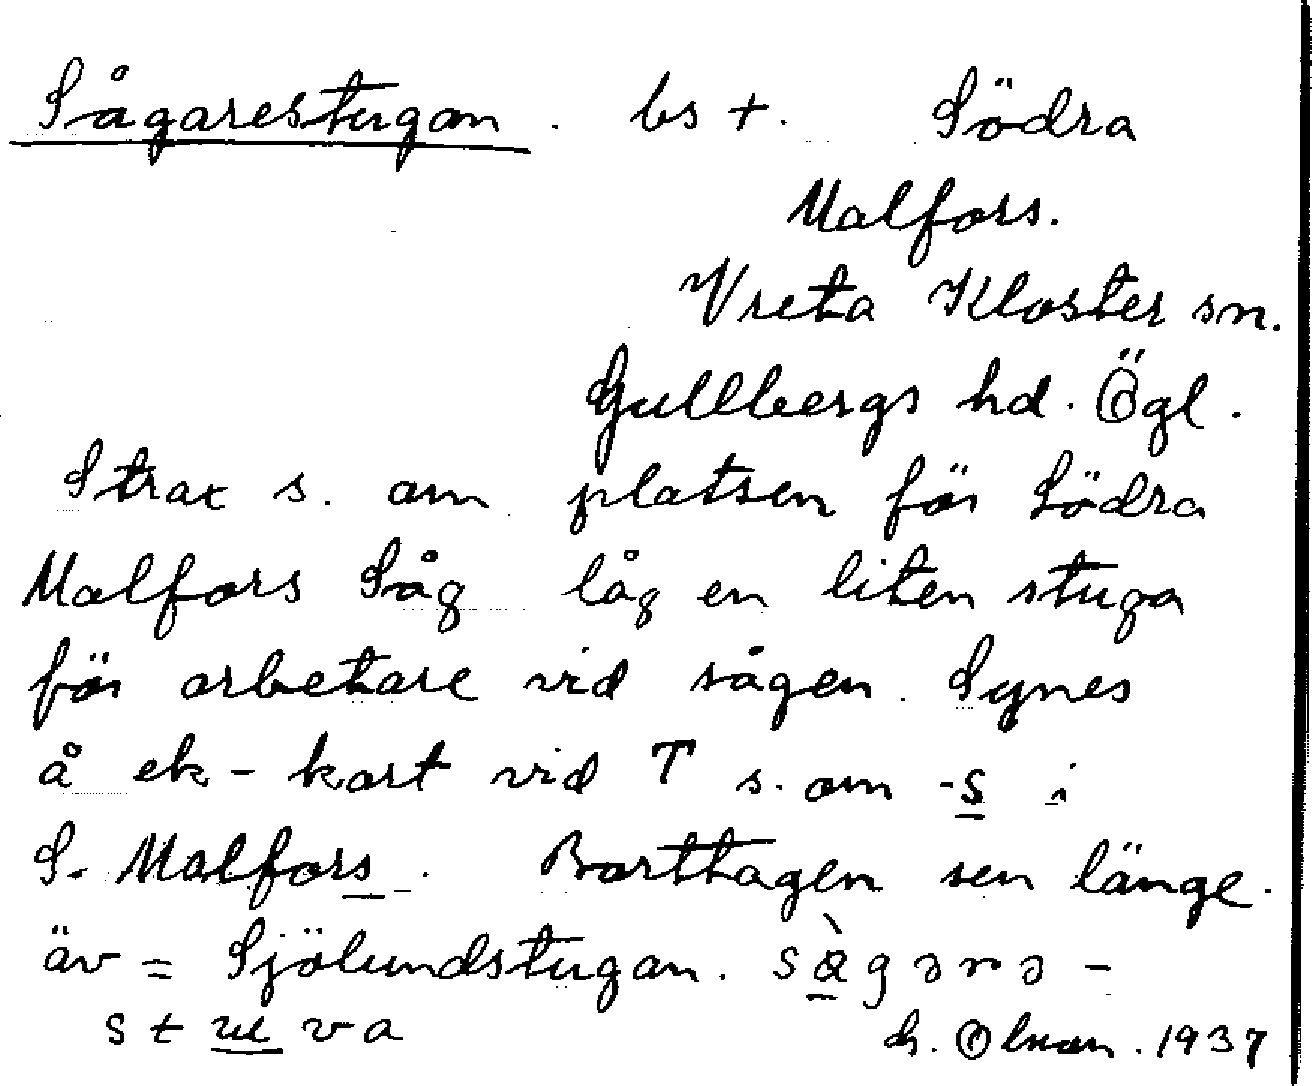 Sågarestugan. bs +. Södra
Malfors.
Vreta Kloster sn.
Gullbergs hd. Ögl.
Strax s. om platsen för Södra
Malfors Såg låg en liten stuga
för arbetare vid sågen. Synes
å ek-kart vid T s. om -s i
S. Malfors. Borttagen sen länge.
äv = Sjölundstugan. sàgərə-
stuva
1937